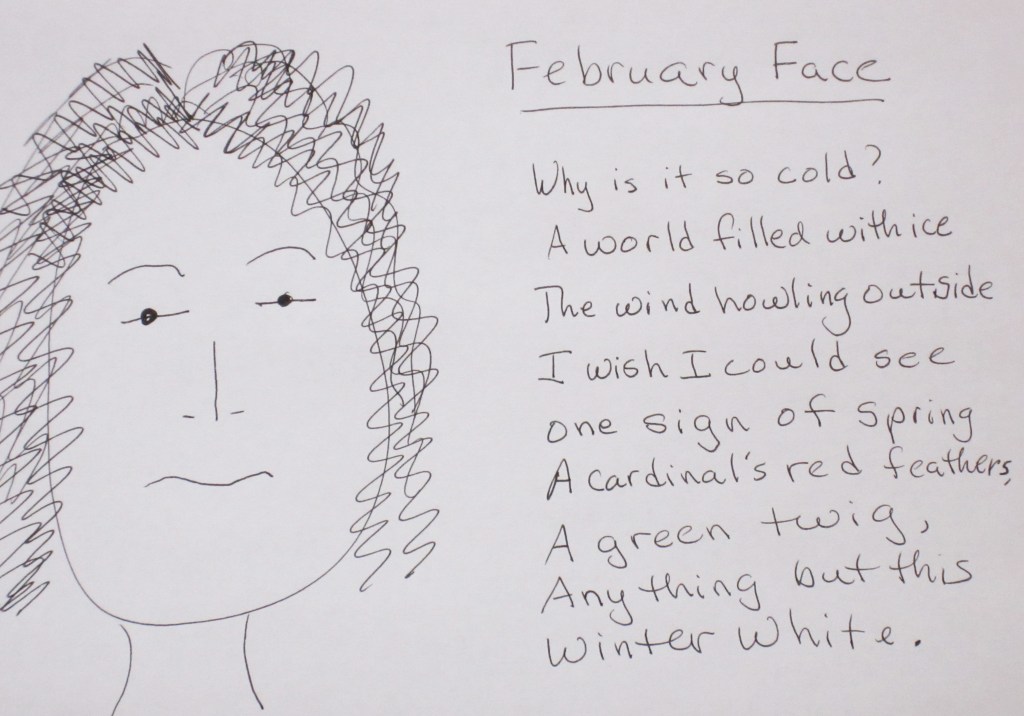 February Face
Why is it so cold?
A world filled with ice
The wind howling outside
I wish I could see
one sign of spring
A cardinal's red feathers,
A green twig,
Anything but this
Winter White.